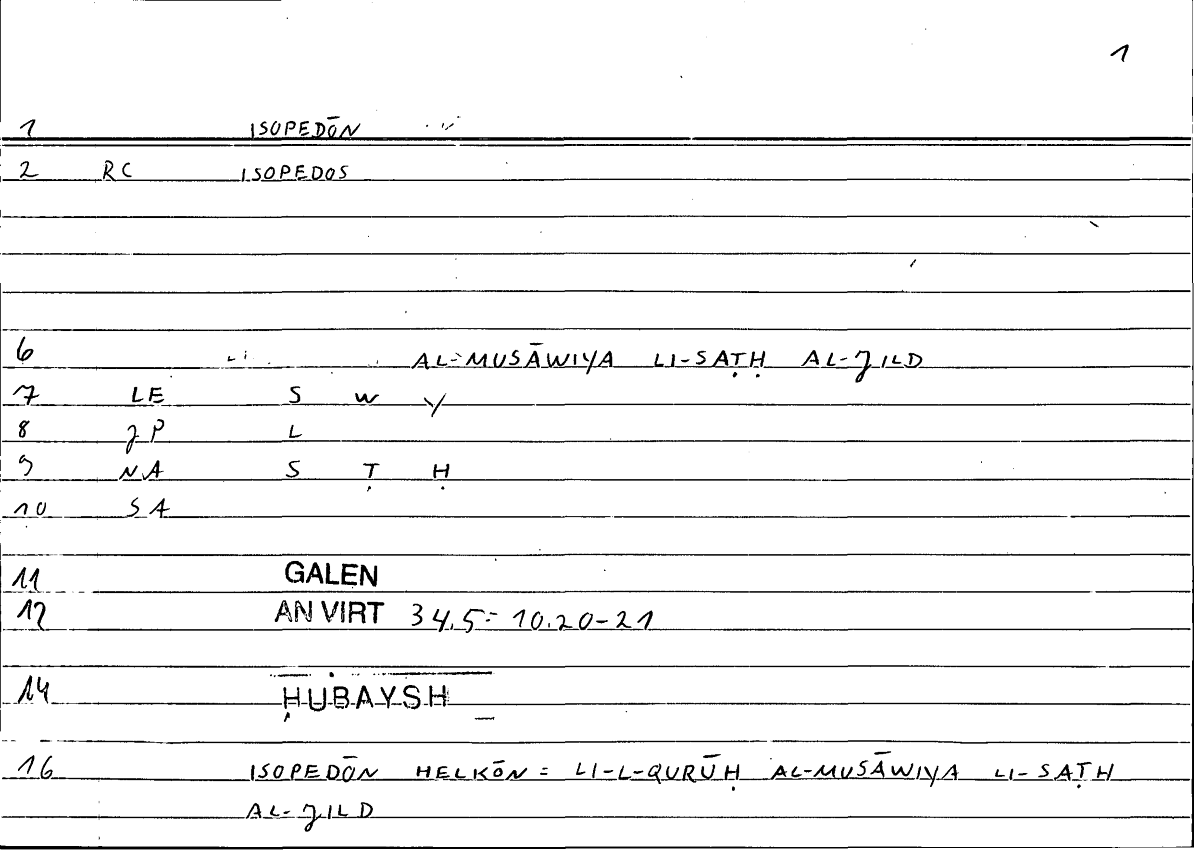 1
1 ISOPEDŌN
2 RC ISOPEDOS
6 AL-MUSĀWIYA LI-SAṬḤ AL-JILD
7 LE S W Y
8 JP L
9 NA S Ṭ Ḥ
10 SA
11 GALEN
12 AN VIRT 34,5 = 10.20-21
14 ḤUBAYSH
16 ISOPEDŌN HELKŌN = LI-L-QURŪḤ AL-MUSĀWIYA LI-SAṬḤ
AL-JILD